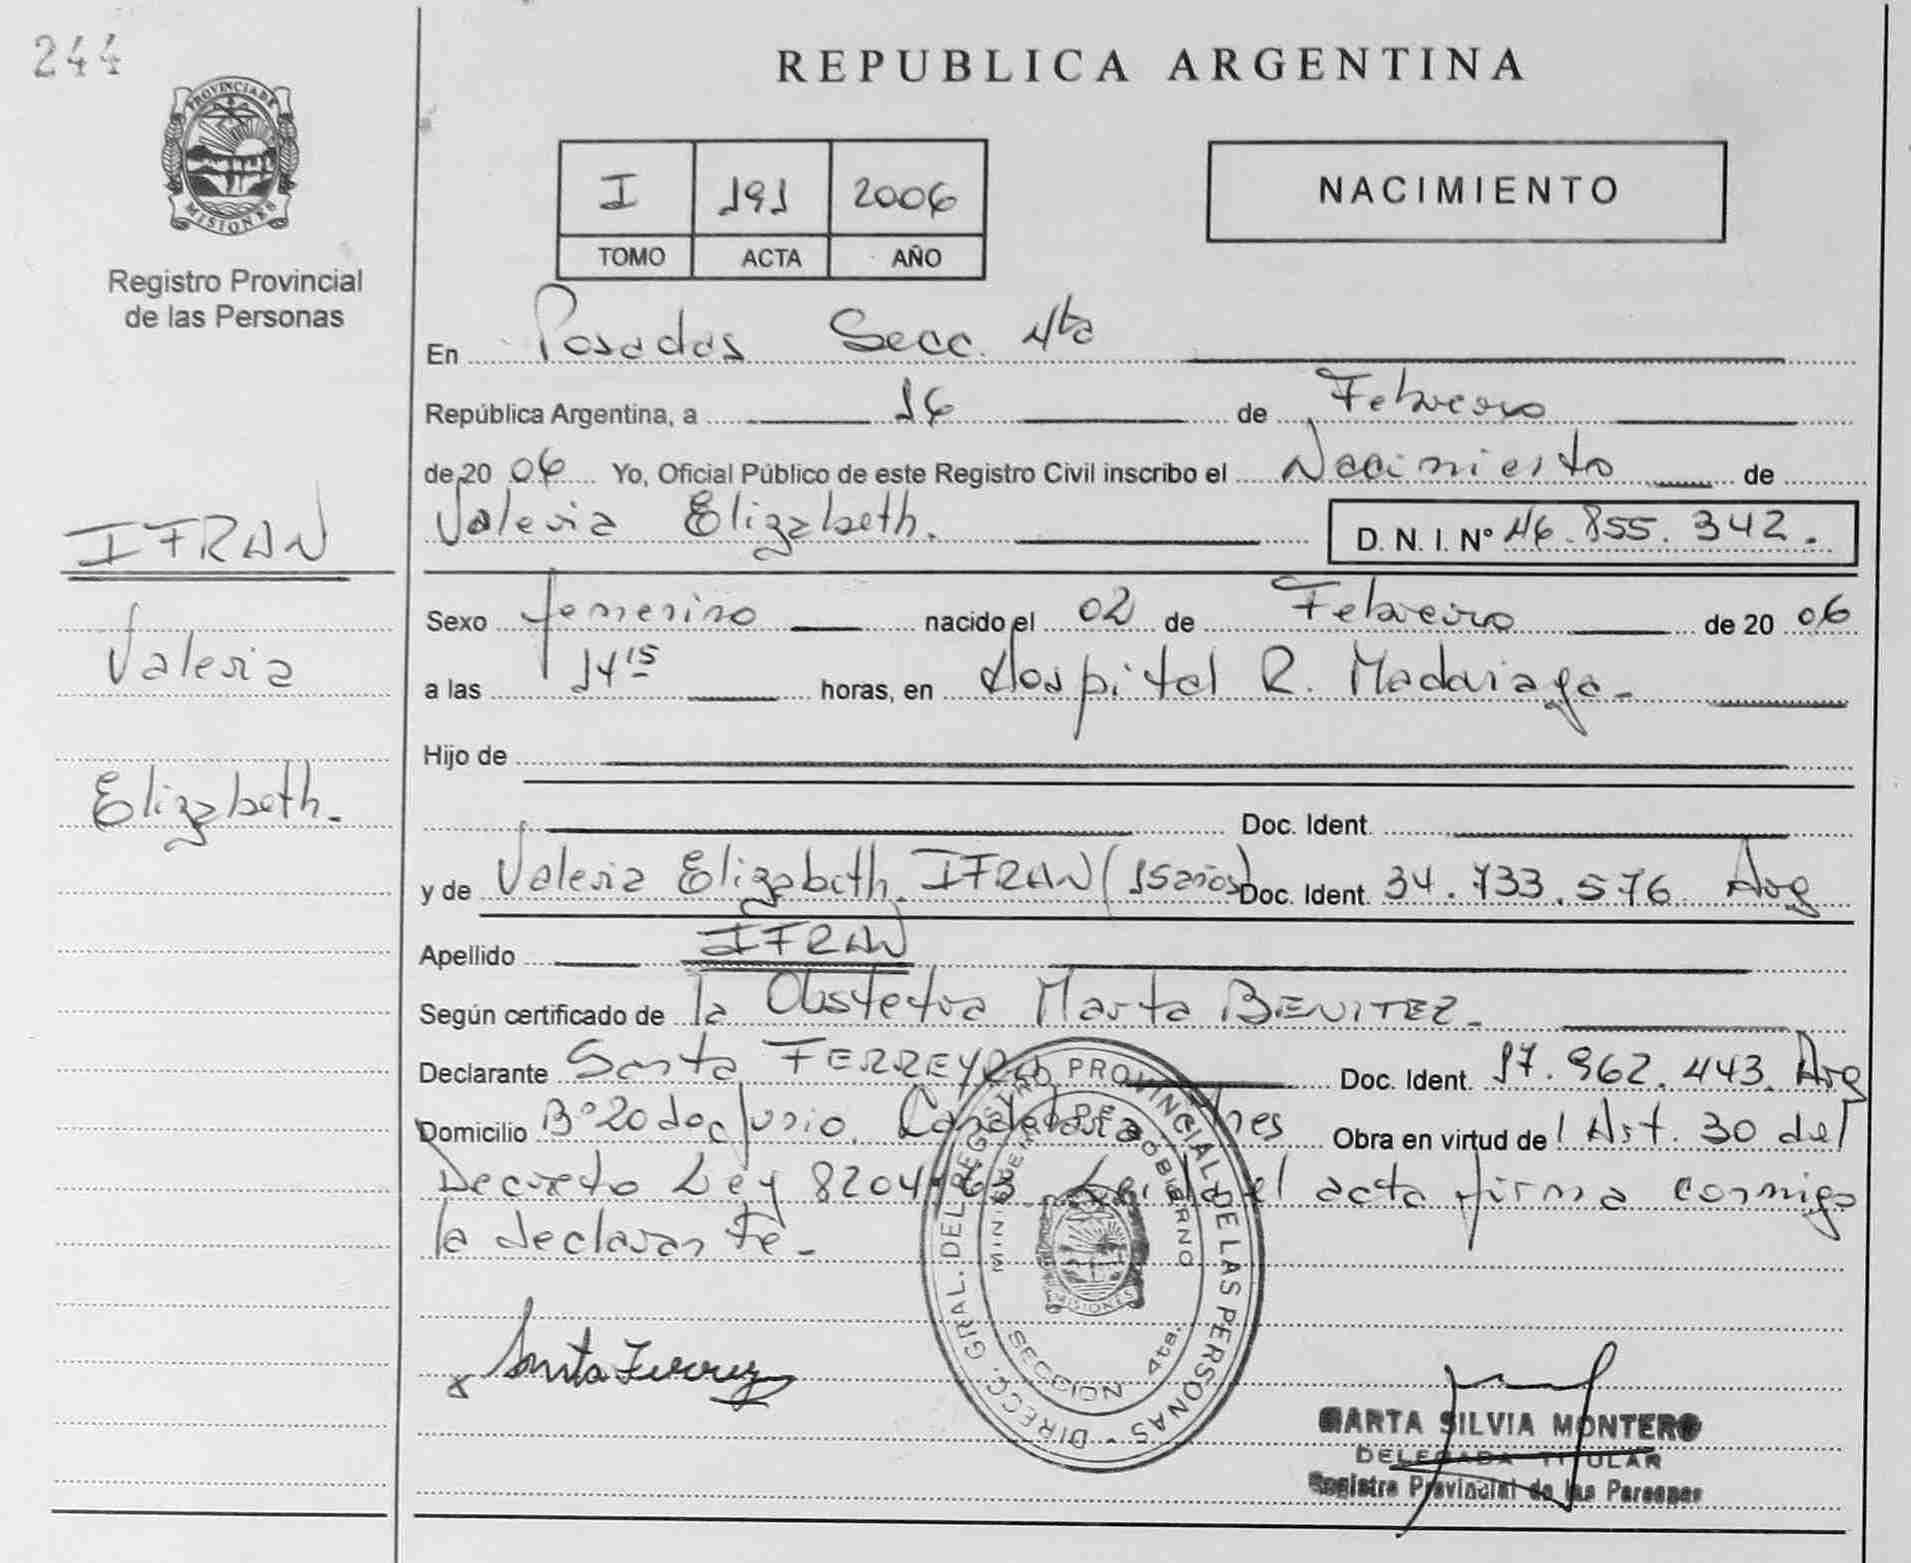 244
REPUBLICA ARGENTINA
PROVINCIA DE
MISIONES
Registro Provincial
de las Personas
I 191 2006
TOMO ACTA AÑO
NACIMIENTO
En Posadas Secc. 4ta
República Argentina, a 16 de Febrero
de 20 06 Yo, Oficial Público de este Registro Civil inscribo el Nacimiento de
Valeria Elizabeth. D. N. I. N° 46.855.342.
IFRAN
Valeria
Elizabeth.-
Sexo femenino nacido el 02 de Febrero de 20 06
a las 14 15 horas, en Hospital R. Madariaga-
Hijo de
Doc. Ident.
y de Valeria Elizabeth IFRAN (15 años) Doc. Ident. 34.733.576 Arg
Apellido IFRAN
Según certificado de la Obstetra Marta BENITEZ-
Declarante Santa FERREYRA Doc. Ident. 17.962.443 Arg
Domicilio B° 20 de Junio. Candelaria Mnes Obra en virtud del Art. 30 del
Decreto Ley 8204/63 Leida el acta firma conmigo
la declarante-
DIRECC. GRAL. DEL REGISTRO PROVINCIAL DE LAS PERSONAS -
MINISTERIO DE GOBIERNO
SECCION 4ta.
MISIONES
MARTA SILVIA MONTERO
DELEGADA TITULAR
Registro Provincial de las Personas